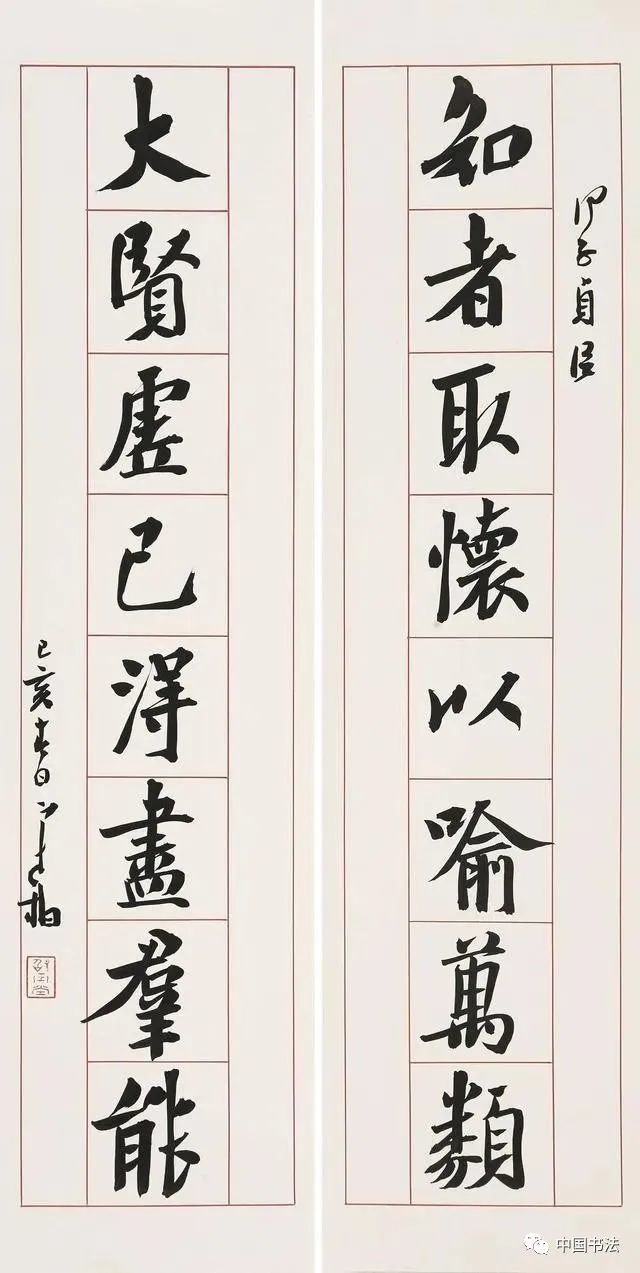 何子貞
知者取懷以喻萬類
大賢虛己得盡羣能
己亥春日
中国书法